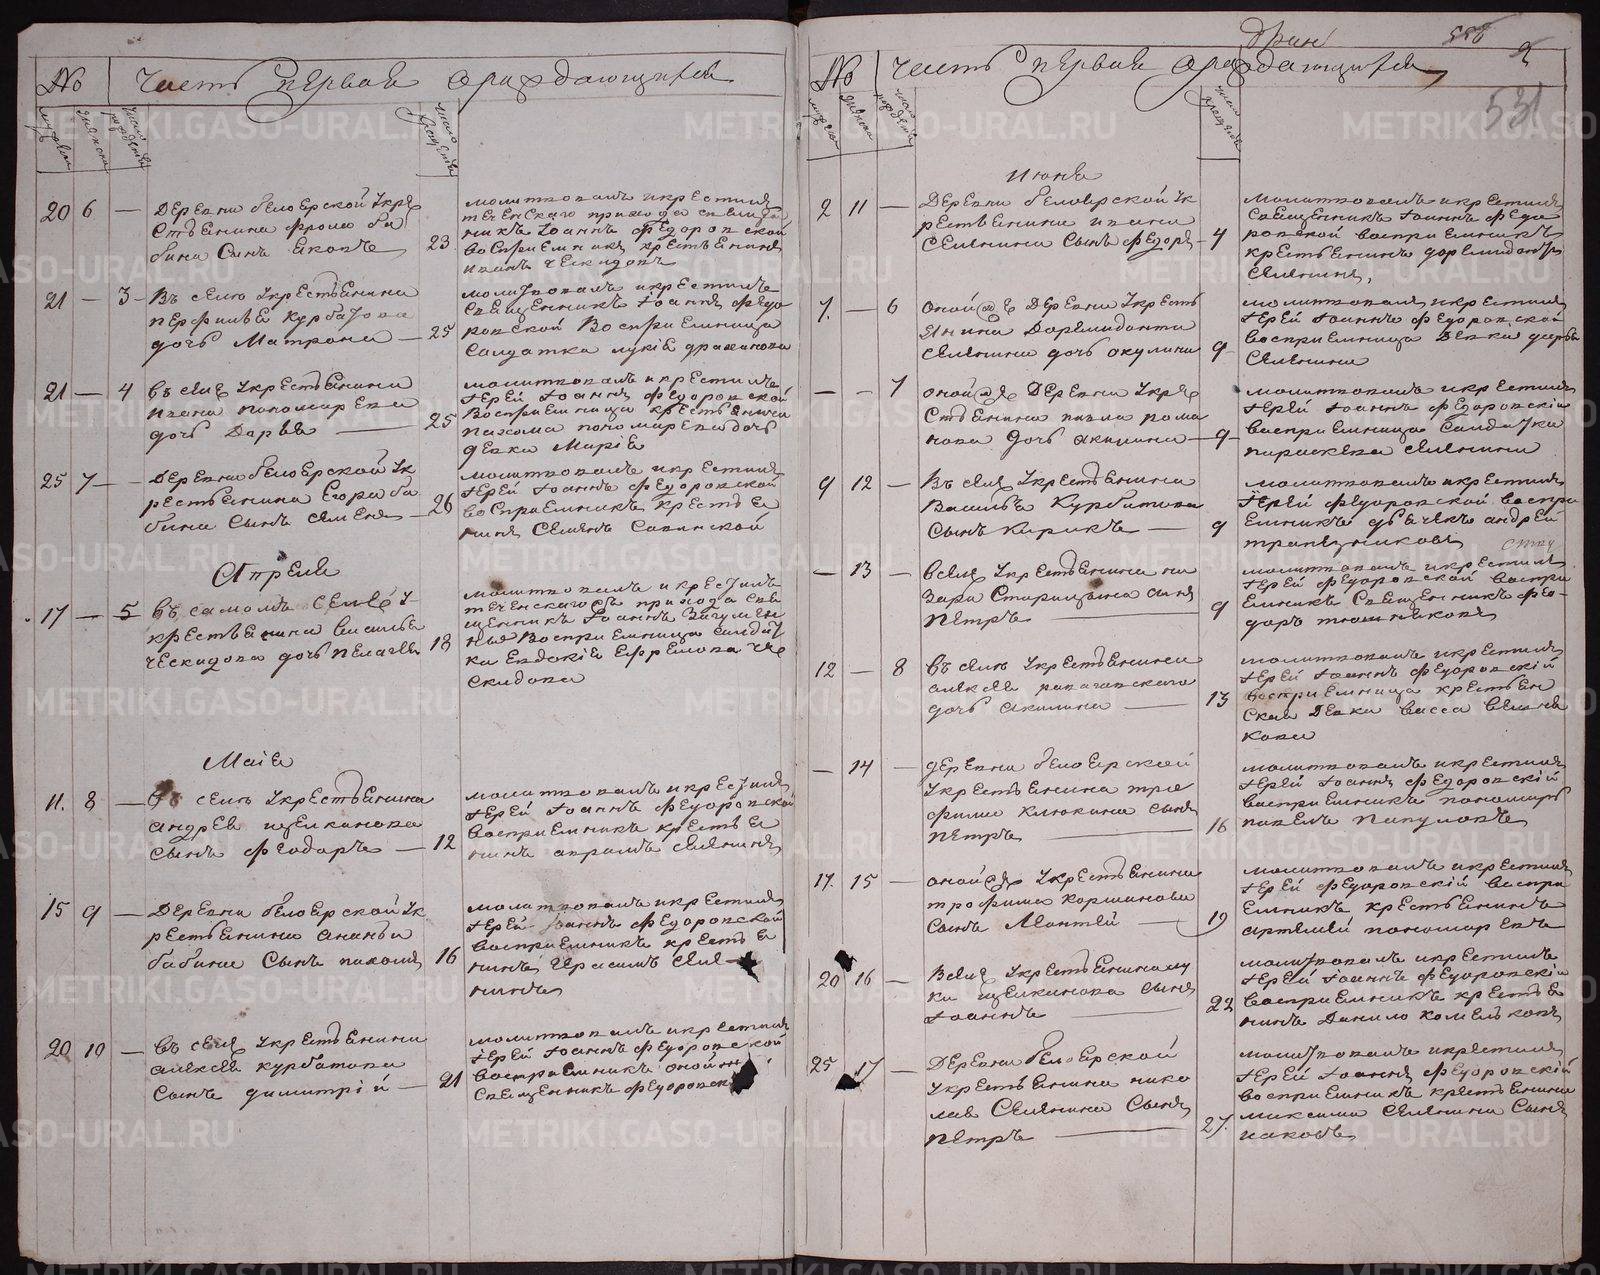 № Часть первая ораждающихся
20 6 — Деревни белоерской Укре
стьенина фрола ба
бина Сынъ Яковъ
23
молитвовалъ икрестилъ
теченскаго прихода свеще
никъ Iоаннъ Федоровской
воспрiемникъ крестьенинъ
иванъ ческидовъ
21 — 3 Въ селе Укрестьенина
перфилья курбатова
дочь Матрона — 25
молитвовалъ икрестилъ
Свещенникъ Iоаннъ Федо
ровской Воспрiемница
Салдатка
21 — 4 въ селе Укрестьенина
ивана пономарева
дочь Дарья — 25
молитвовалъ икрестилъ
Iерей Iоаннъ Федоровской
Воспрiемница крестьенина
пахома пономарева дочь
девка Марiя
25 7 — Деревни белоерской Ук
рестьенина Егора ба
бина Сынъ Семенъ — 26
молитвовалъ икрестилъ
Iерей Iоаннъ Федоровской
воспрiемникъ крестье
нинъ Семенъ Савинской
Апреля
17 — 5 въ самомъ селе У
крестьенина василья
ческидова дочь пелагея 18
молитвовалъ икрестилъ
теченскаго прихода све
щенникъ Iоаннъ
Воспрiемница салдат
ка Евдокiя Ефремова че
скидова
Маiя
11. 8 — Въ селе Укрестьенина
андрея щелканова
сынъ Феодоръ — 12
молитвовалъ икрестилъ
Iерей Iоаннъ Федоровской
воспрiемникъ крестье
нинъ аврамъ селянинъ
15 9 — Деревни белоерской Ук
рестьенина Ананьи
бабина Сынъ пахомъ 16
молитвовалъ икрестилъ
Iерей Iоаннъ Федоровской
воспрiемникъ крестье
нинъ Герасимъ Селя
нинъ
20 10 — въ селе Укрестьенина
алексея курбатова
Сынъ димитрiй — 21
молитвовалъ икрестилъ
Iерей Iоаннъ Федоровской
воспрiемникъ оной
Свещенникъ Федоровск
556
2
531
№ Часть первая ораждающихся
Июня
2 11 — Деревни белоерской Ук
рестьенина ивана
Селянина Сынъ Федоръ — 4
молитвовалъ икрестилъ
Свещенникъ Iоаннъ Федо
ровской воспрiемникъ
крестьенинъ
Селянинъ
7. — 6 оной же Деревни Укресть
янина Доримидонта
Селянина дочь окулина 9
молитвовалъ икрестилъ
Iерей Iоаннъ Федоровской
воспрiемница Девка дарья
Селянина
— — 7 оной же Деревни Укре
стьенина павла рома
нова дочь акилина — 9
молитвовалъ икрестилъ
Iерей Iоаннъ Федоровскiй
воспрiемница Салдатка
параскева Селянина
9 12 — Въ селе Укрестьенина
Василья Курбатова
Сынъ Кирикъ — 9
молитвовалъ икрестилъ
Iерей Федоровской воспрi
емникъ дьячекъ андрей
трапезниковъ
— 13 — вселе Укрестьенина на
зара Старицына сынъ
петръ — 9
молитвовалъ икрестилъ
Iерей Федоровской воспрi
емникъ Свещенникъ Фео-
доръ
12 — 8 въ селе Укрестьенина
алексея
дочь акилина — 13
молитвовалъ икрестилъ
Iерей Iоаннъ Федоровскiй
воспрiемница крестьен
ская Девка васса
кова
— 14 — деревни белоерской
Укрестьенина тро
фима Клюкина сынъ
петръ — 16
молитвовалъ икрестилъ
Iерей Iоаннъ Федоровскiй
воспрiемникъ пономарь
павелъ
17. 15 — оной же Укрестьенина
трофима коршинова
Сынъ Леонтей — 19
молитвовалъ икрестилъ
Iерей Федоровскiй воспрi
емникъ крестьенинъ
артемей пономаревъ
20 16 — Вселе Укрестьенина лу
ки щелканова сынъ
Iоаннъ — 22
молитвовалъ икрестилъ
Iерей Iоаннъ Федоровскiй
воспрiемникъ крестье
нинъ Данило
25 17 — Деревни белоерской
Укрестьенина нико
лая Селянина Сынъ
петръ — 27.
молитвовалъ икрестилъ
Iерей Iоаннъ Федоровскiй
воспрiемникъ крестьенина
максима Селянина Сынъ
иаковъ
METRIKI.GASO-URAL.RU